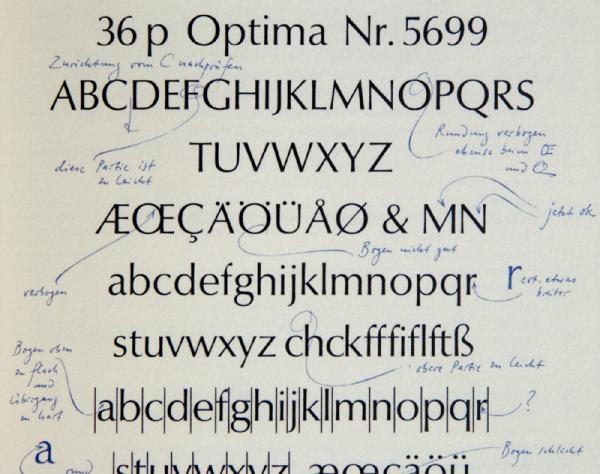 36 p Optima Nr. 5699
Zurichtung vom C nachprüfen
ABCDEFGHIJKLMNOPQRS
Rundung verbogen
ebenso beim Œ
und Q
diese Partie ist
zu leicht
TUVWXYZ
ÆŒÇÄÖÜÅØ & MN
jetzt ok
Bogen nicht gut
verbogen
abcdefghijklmnopqr
r evt. etwas
breiter
stuvwxyz chckfffiflftß
obere Partie zu leicht
Bogen oben
zu flach
und
Übergang
zu hart
abcdefghijklmnopqr
?
a
rund
Bogen schlecht
stuvwxyz æœçäöü